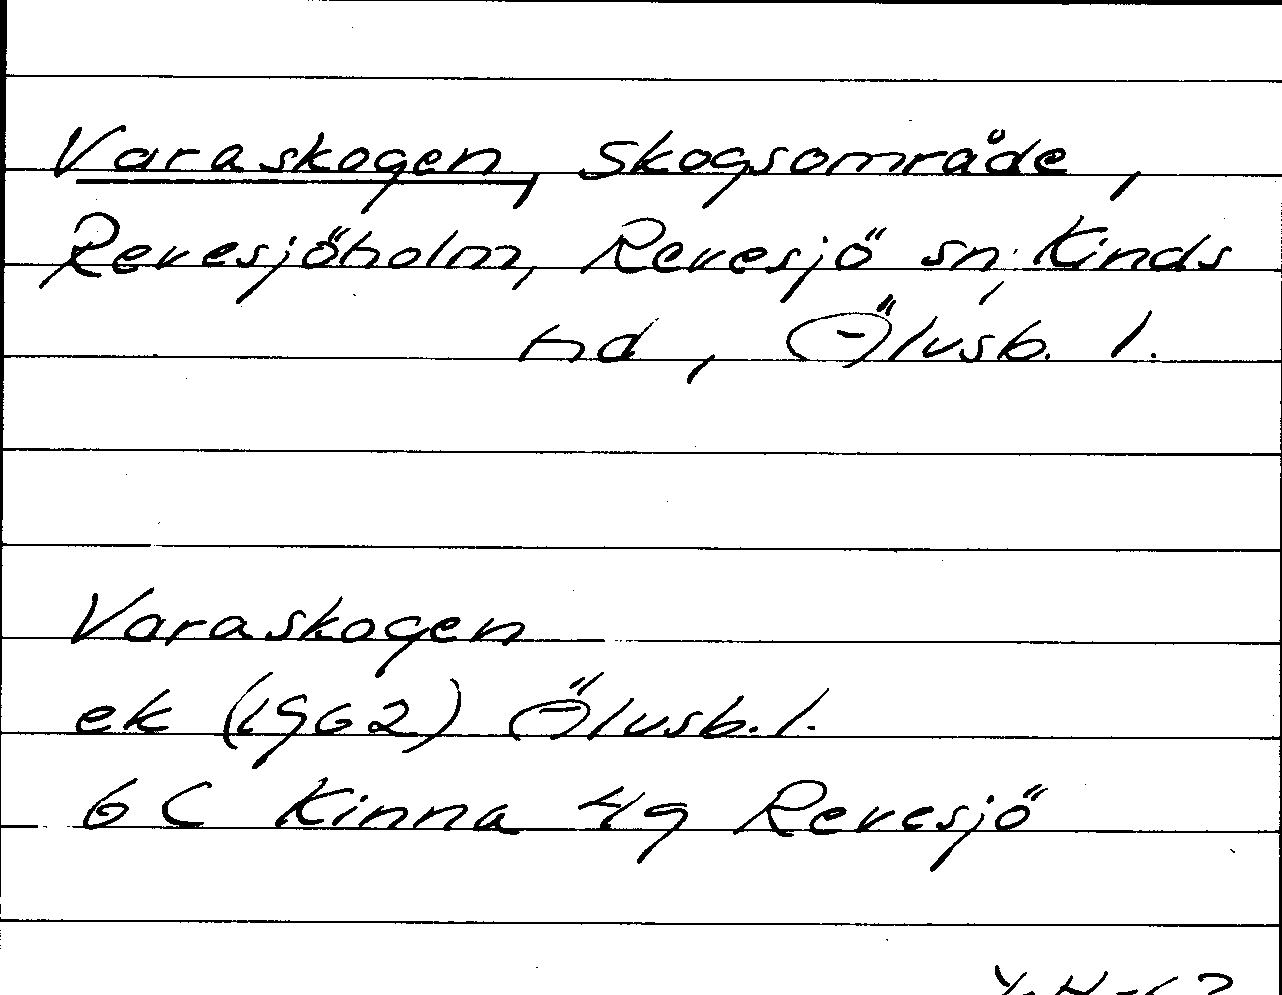 Varaskogen, skogsområde,
Revesjöholm, Revesjö sn, Kinds
hd, Ölvsb. l.
Varaskogen
ek (1962) Ölvsb. l.
6 C Kinna 4g Revesjö